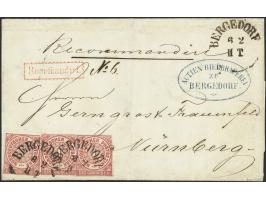 BERGEDORF
6 2
Recommandirt
Recomandirt
No. 6.
ACTIEN-BIERBRAUEREI
ZU
BERGEDORF.
Herren
Gerngrost Frauenfeld
Nürnberg.
BERGEDORF BERGEDORF